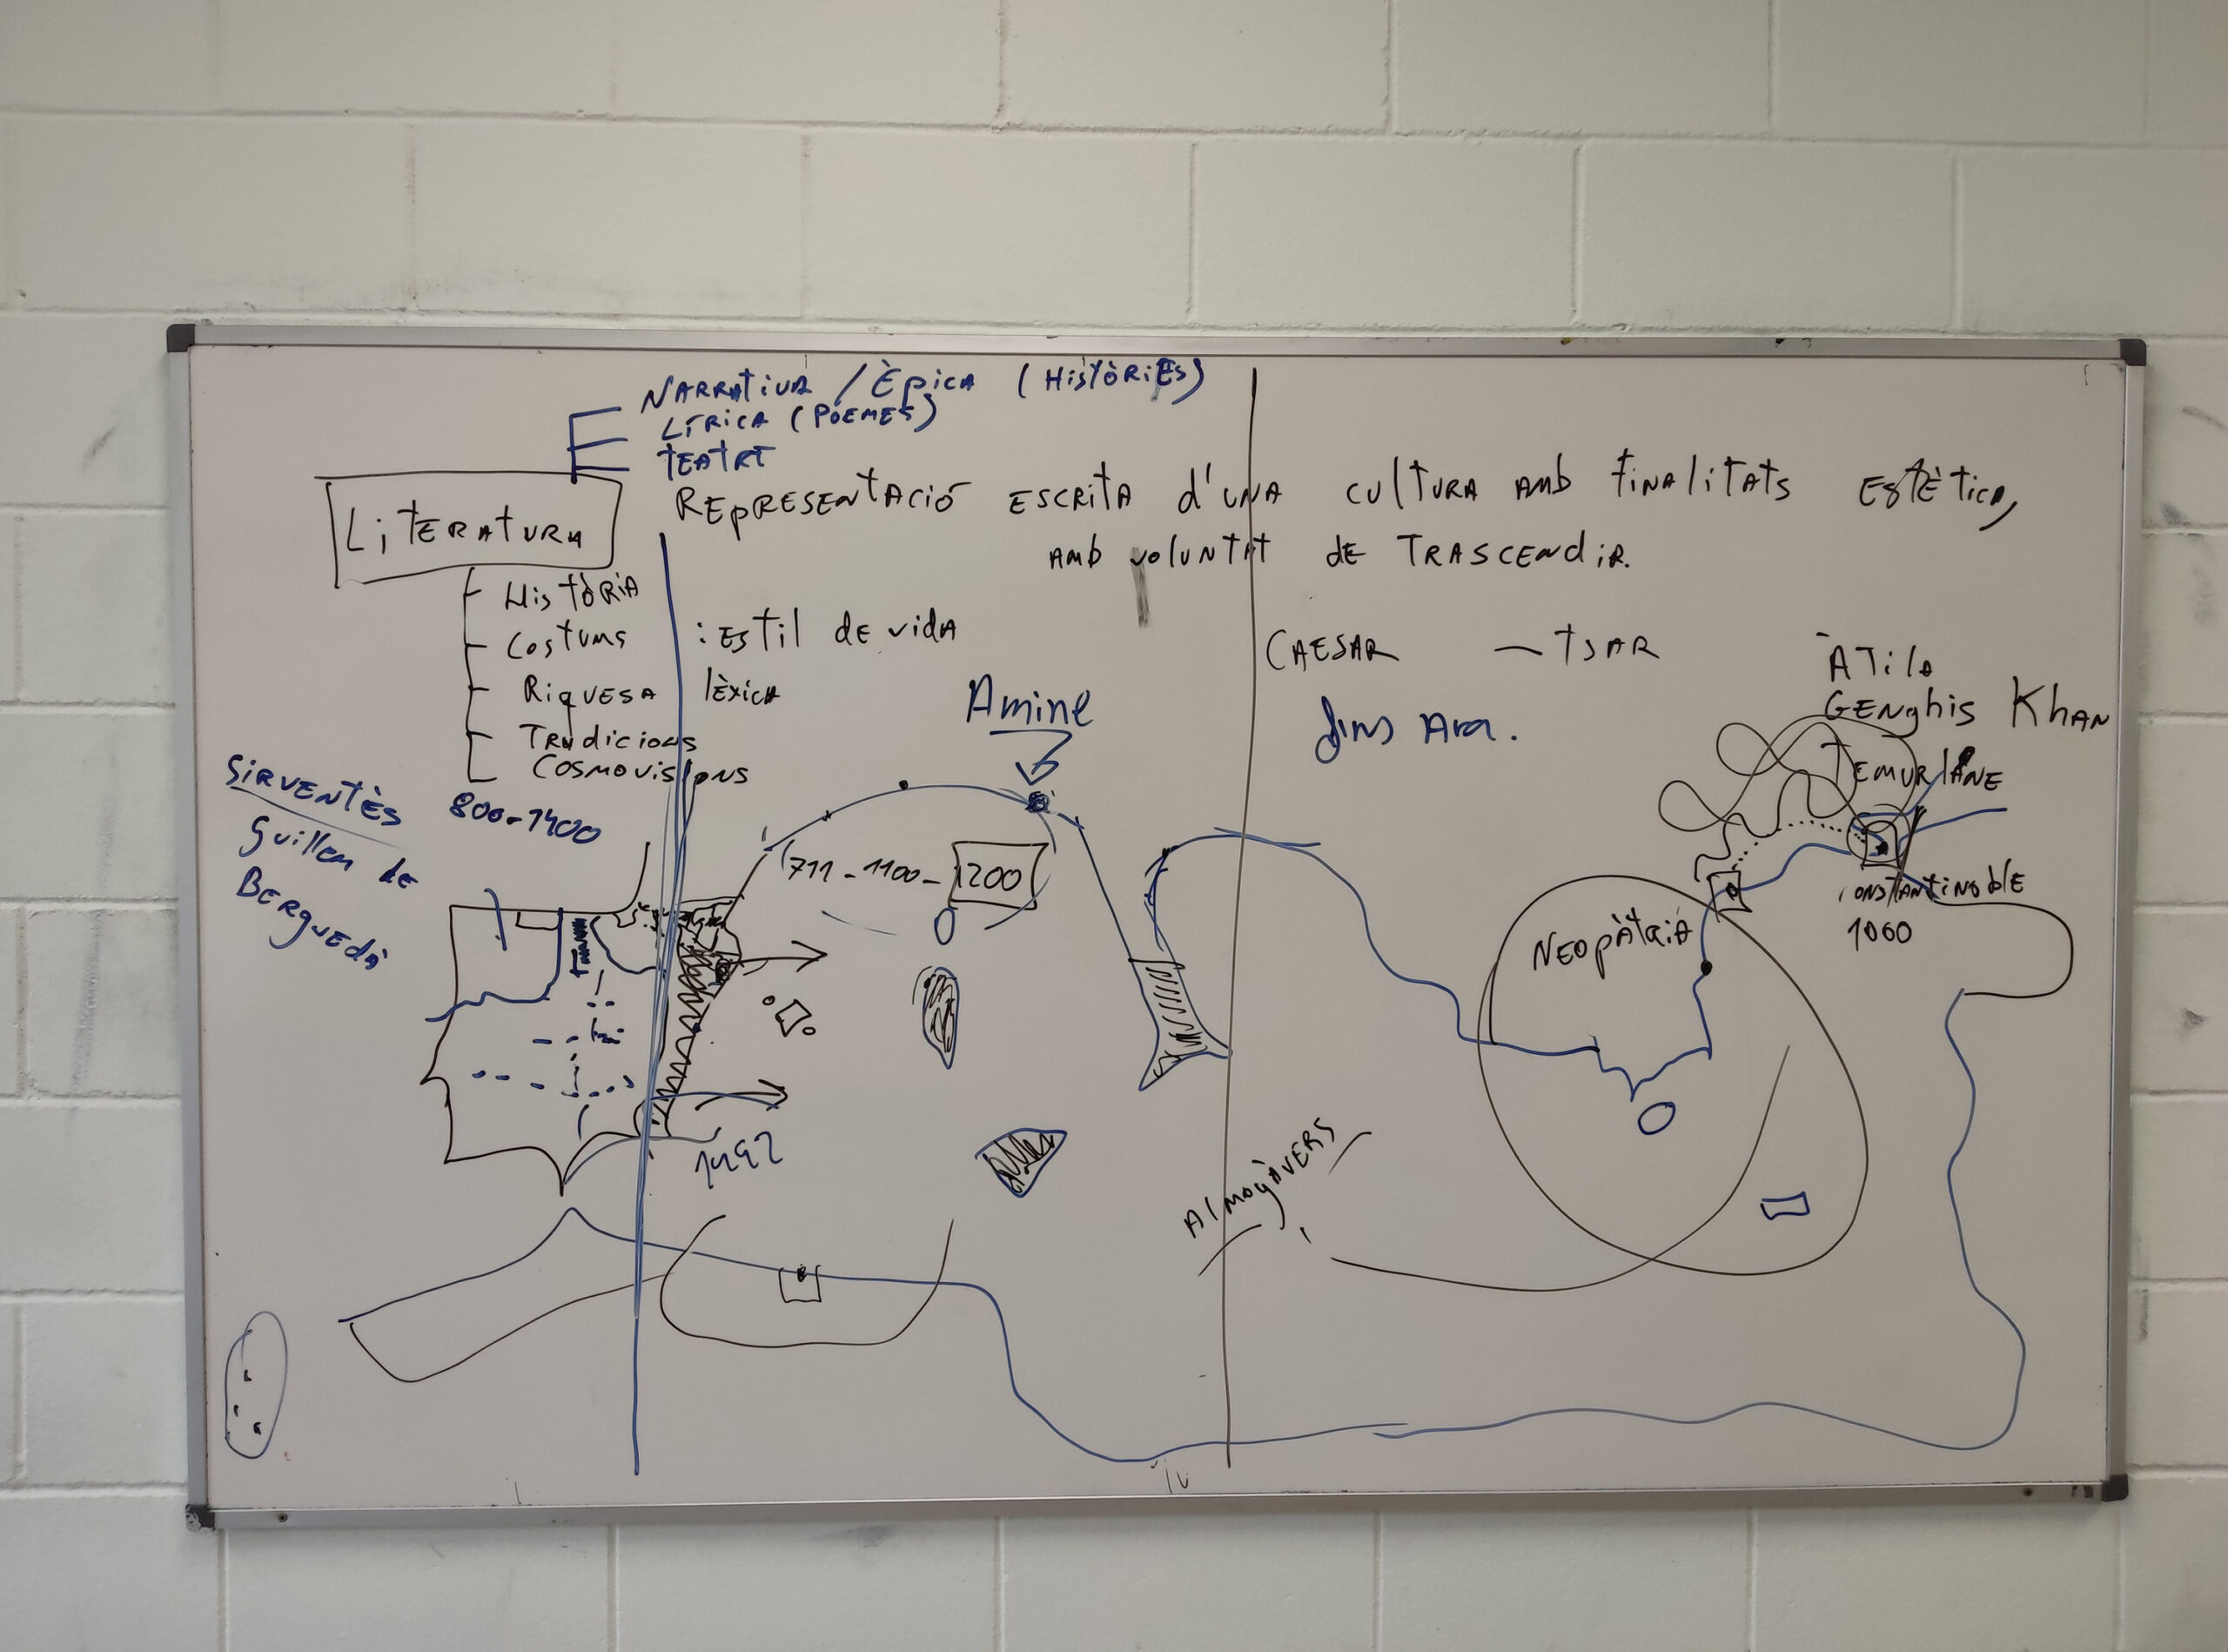 NARRATIVA / ÈPICA (HISTÒRIES)
LÍRICA (POEMES)
TEATRE
LITERATURA
REPRESENTACIÓ ESCRITA d'UNA CULTURA AMB FINALITATS ESTÈTICA,
AMB VOLUNTAT DE TRASCENDIR.
HISTÒRIA
COSTUMS : ESTIL DE VIDA
RIQUESA LÈXICA
TRADICIONS
COSMOVISIONS
CAESAR — TSAR
fins Ara.
ATILA
GENGHIS KHAN
TEMURLANE
Amine
SIRVENTÈS
Guillem de
BERGUEDÀ
800-1400
711-1100-1200
CONSTANTINOBLE
1060
NEOPÀTRIA
1492
ALMOGÀVERS